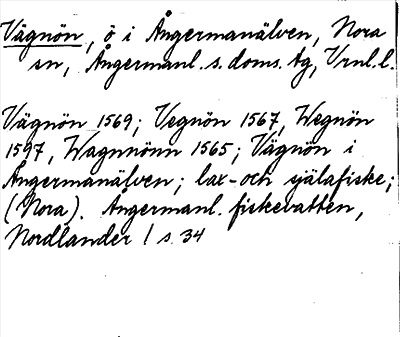 Vägnön, ö i Ångermanälven, Nora
sn, Ångermanl. s. doms. tg, Vrnl. l.
Vägnön 1569; Vegnön 1567, Wegnön
1597, Wagnnönn 1565; Vägnön i
Ångermanälven; lax- och själafiske;
(Nora). Ångermanl. fiskevatten,
Nordlander / s. 34